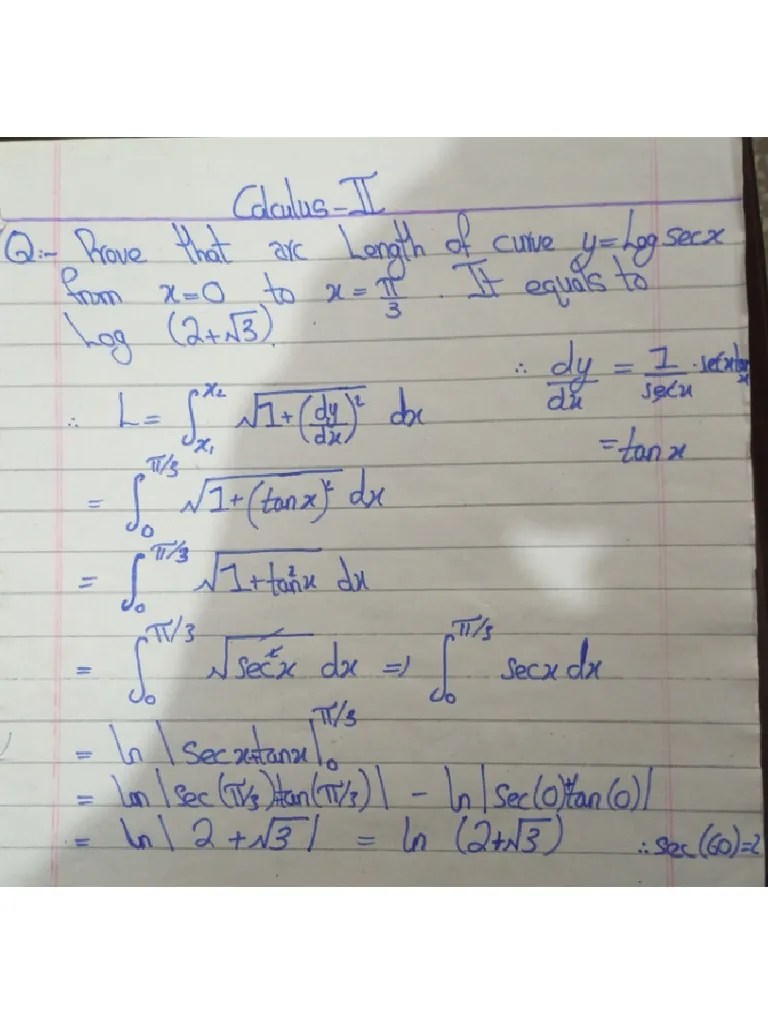 Calculus-II
Q:- Prove that arc Length of curve y=Log secx
from x=0 to x=π/3. It equals to
Log (2+√3)
∴ dy/dx = 1/secx · secxtanx
= tanx
∴ L = ∫_{x₁}^{x₂} √(1+(dy/dx)²) dx
= ∫₀^{π/3} √(1+(tanx)²) dx
= ∫₀^{π/3} √(1+tan²x) dx
= ∫₀^{π/3} √(sec²x) dx ⇒ ∫₀^{π/3} secx dx
= ln|secx+tanx|₀^{π/3}
= ln|sec(π/3)+tan(π/3)| - ln|sec(0)+tan(0)|
= ln|2+√3| = ln (2+√3) ∴ sec(60)=2